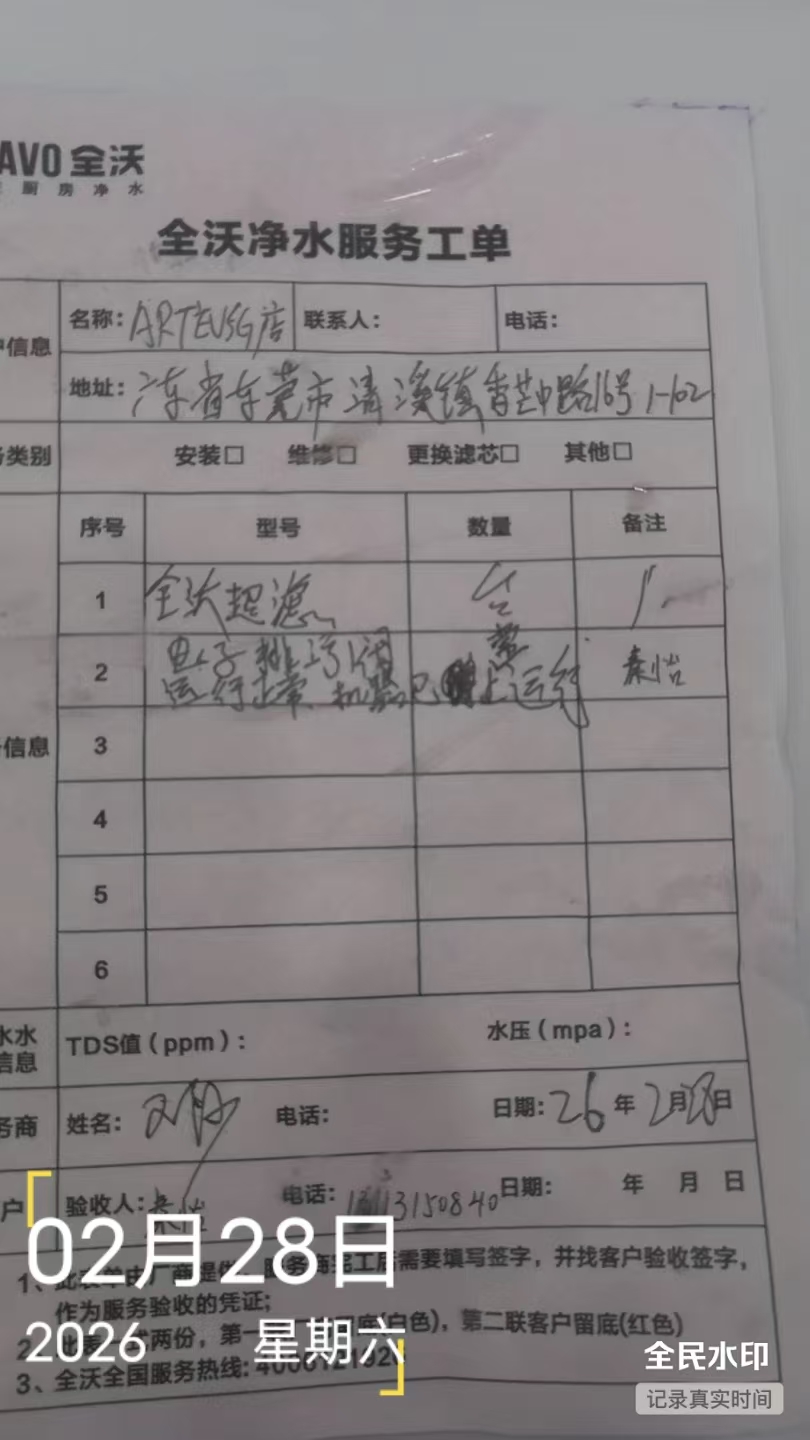 AVO 全沃
厨房净水
全沃净水服务工单
户信息
名称: ARTEUSG店 联系人: 电话:
地址: 广东省东莞市清溪镇香芒中路16号1-102
务类别 安装□ 维修□ 更换滤芯□ 其他□
序号 型号 数量 备注
1 全沃超滤 台
2 电子排污阀
运行正常 机器已 上运行 秦怡
信息
3
4
5
6
水水
信息
TDS值（ppm）: 水压（mpa）:
务商 姓名: 电话: 日期: 26年2月28日
户 验收人: 电话: 13150840 日期: 年 月 日
1、此表单由厂商提供, 服务商完工后需要填写签字，并找客户验收签字，
作为服务验收的凭证;
2、此表一式两份，第一 底(白色)，第二联客户留底(红色)
3、全沃全国服务热线:
02月28日
2026 星期六
全民水印
记录真实时间